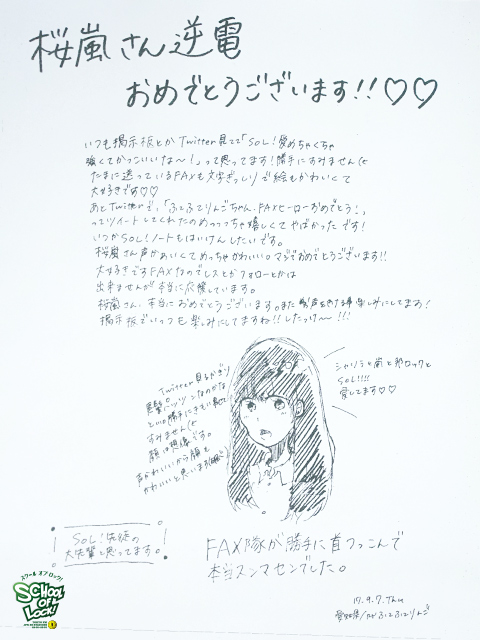 桜嵐さん逆電
おめでとうございます!!♡♡
いつも掲示板とかTwitter見てて「SOL!愛めちゃくちゃ
強くてかっこいいな〜!」って思ってます!勝手にすみません
たまに送っているFAXも文字ぎっしりで絵もかわいくて
大好きです♡♡
あとTwitterで、「ふてふてりんごちゃん、FAXヒーローおめでとう!」
ってツイートしてくれたのめっっっちゃ嬉しくてやばかったです!
いつかSOL!ノートもはいけんしたいです。
桜嵐さん声かわいくてめっちゃかわいい。マジでおめでとうございます!!
大好きですFAXなのでレスとかフォローとかは
出来ませんが本当に応援しています。
桜嵐さん、本当におめでとうございます。また声をきける事楽しみにしてます!
掲示板でいつも楽しみにしてますね!!したっけ〜!!!
Twitter見るかぎり
黒髪パッツンなのかな
といい勝手に
すみません
顔は想像です。
声かわいいから顔も
かわいいと思います
シャソラと嵐と邦ロックと
SOL!!!!
愛してます♡♡
SOL!生徒の
大先輩と思ってます。
FAX隊が勝手に首つっこんで
本当スンマセンでした。
スクール オブ ロック!
SCHOOL OF LOCK!
17.9.7.Thu
愛知県/ふてふてりんご